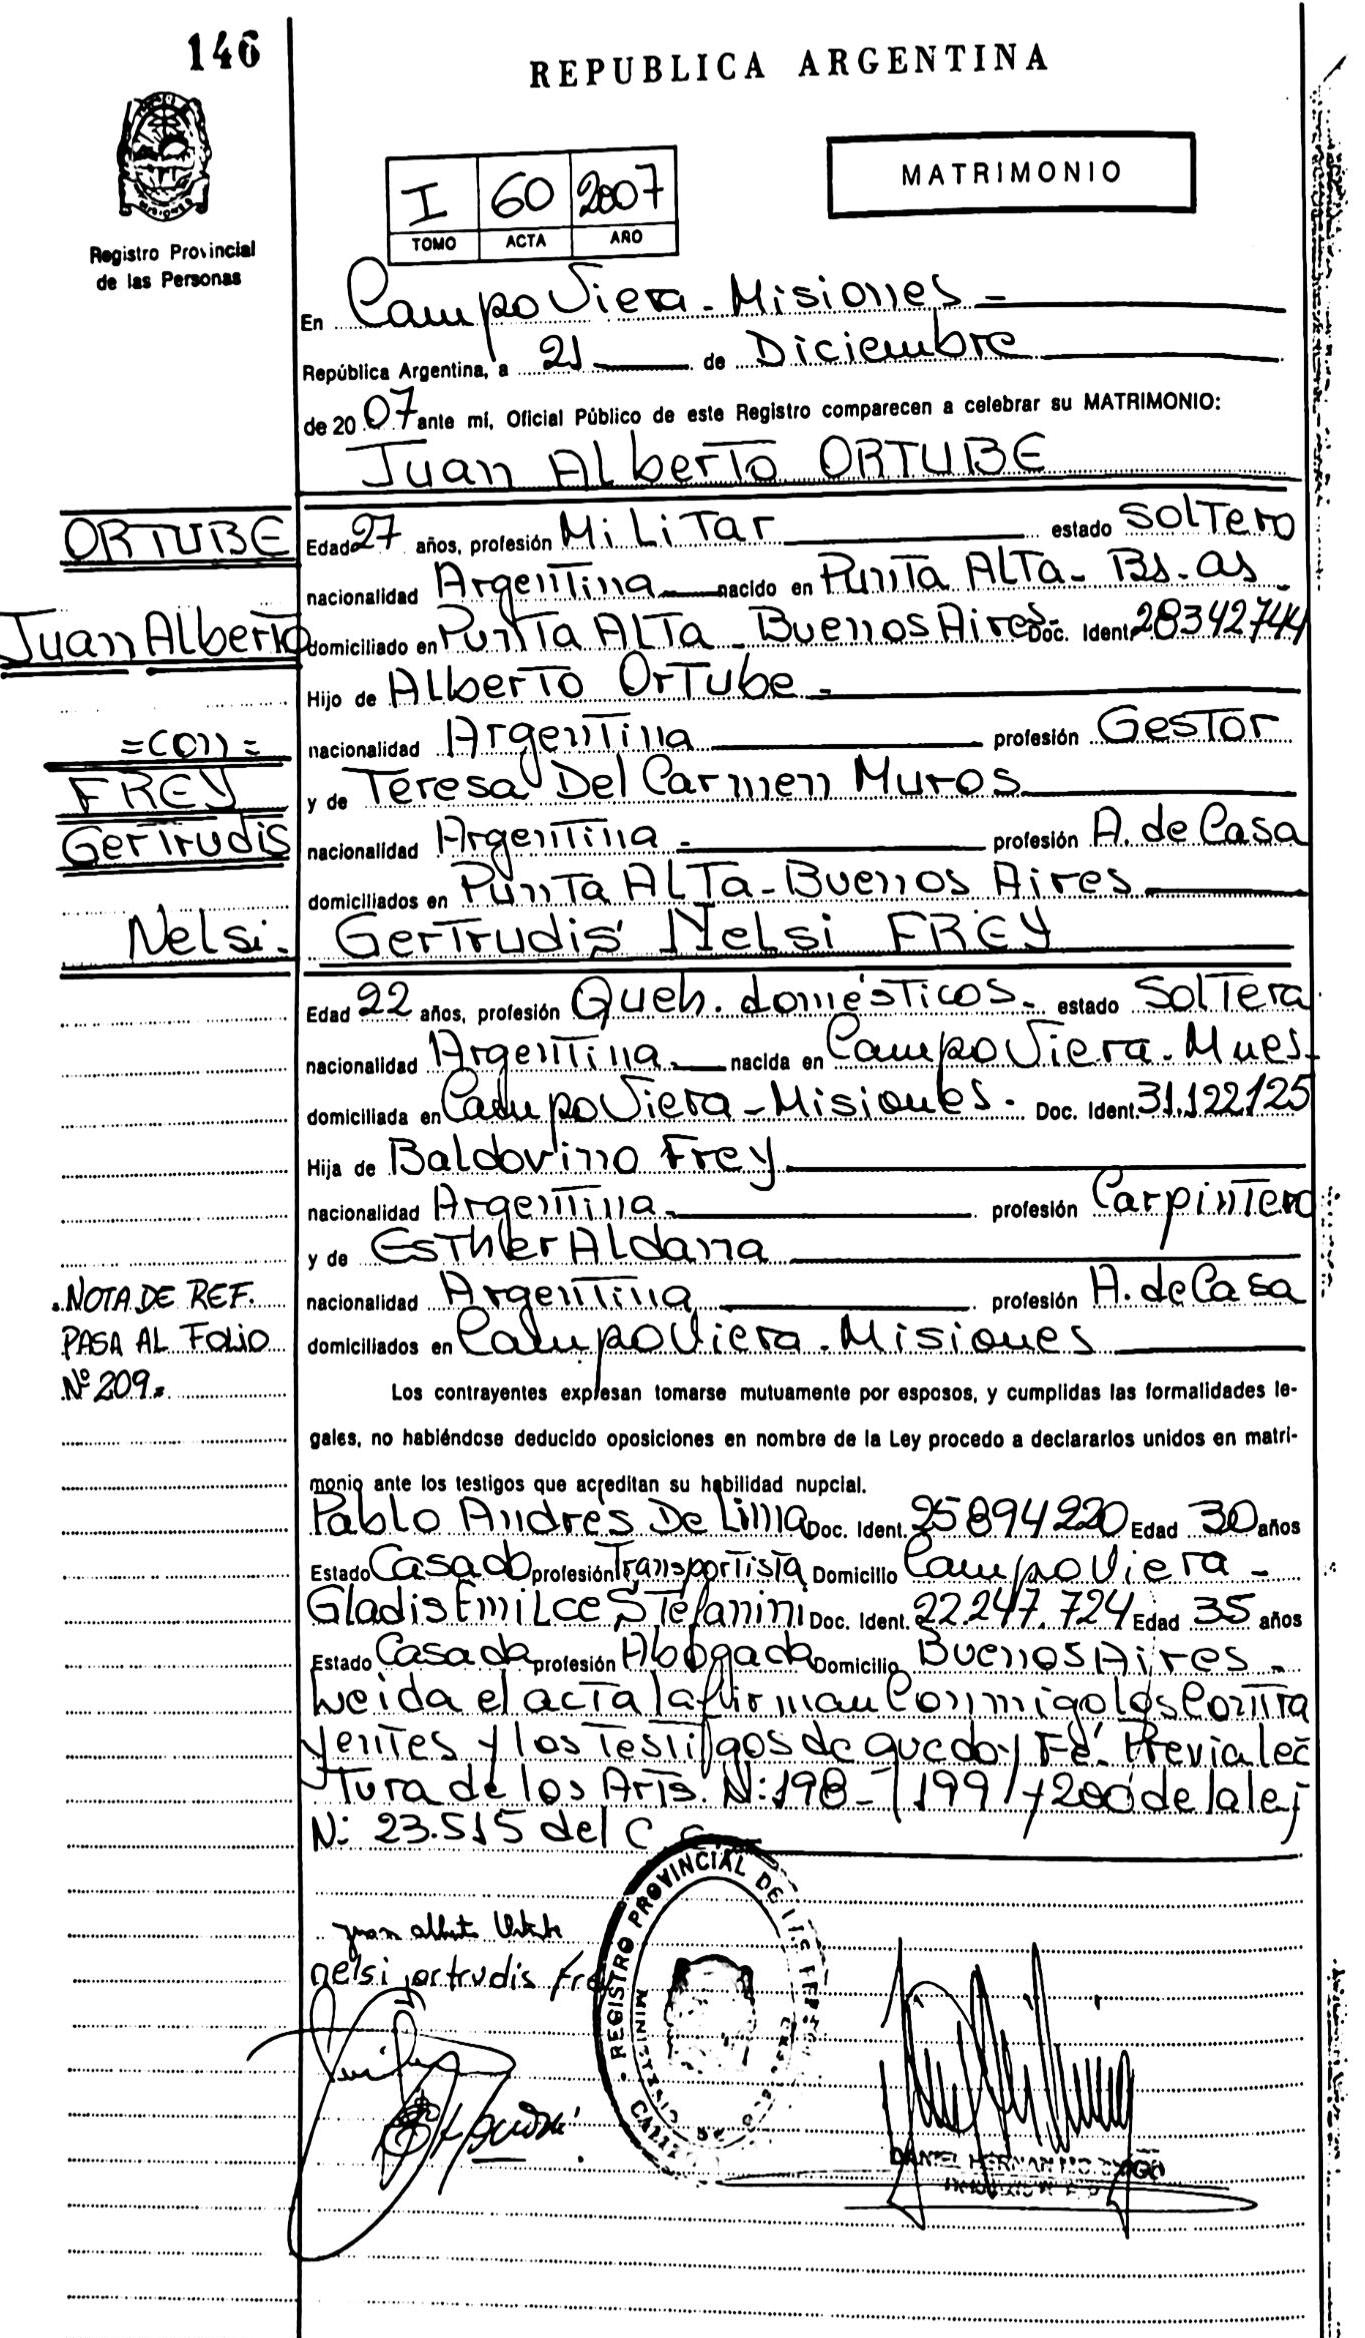 146
REPUBLICA ARGENTINA
MATRIMONIO
I 60 2007
TOMO ACTA AÑO
Registro Provincial
de las Personas
En Campo Viera - Misiones -
República Argentina, a 21 de Diciembre
de 2007 ante mí, Oficial Público de este Registro comparecen a celebrar su MATRIMONIO:
Juan Alberto ORTUBE
ORTUBE
Juan Alberto
=con=
FREY
Gertrudis
Nelsi.
Edad 27 años, profesión Militar estado Soltero
nacionalidad Argentina nacido en Punta Alta - Bs. as -
domiciliado en Punta Alta - Buenos Aires - Doc. Ident. 28342744
Hijo de Alberto Ortube -
nacionalidad Argentina profesión Gestor
y de Teresa Del Carmen Muros
nacionalidad Argentina - profesión A. de Casa
domiciliados en Punta Alta - Buenos Aires
Gertrudis Nelsi FREY
Edad 22 años, profesión Queh. domésticos - estado Soltera
nacionalidad Argentina nacida en Campo Viera - Mnes -
domiciliada en Campo Viera - Misiones - Doc. Ident. 31.122.125
Hija de Baldovino Frey
nacionalidad Argentina - profesión Carpintero
y de Esther Aldana
nacionalidad Argentina profesión A. de Casa
domiciliados en Campo Viera - Misiones
NOTA DE REF.
PASA AL FOLIO
Nº 209.
Los contrayentes expresan tomarse mutuamente por esposos, y cumplidas las formalidades le-
gales, no habiéndose deducido oposiciones en nombre de la Ley procedo a declararlos unidos en matri-
monio ante los testigos que acreditan su habilidad nupcial.
Pablo Andrés De Lima Doc. Ident. 25894220 Edad 30 años
Estado Casado profesión Transportista Domicilio Campo Viera -
Gladis Emilce Stefanini Doc. Ident. 22.247.724 Edad 35 años
Estado Casada profesión Abogada Domicilio Buenos Aires -
Leida el acta la firman Conmigo los Contra
yentes y los Testigos de que doy Fé. Previa lec
tura de los Arts. N: 198 - 199 y 200 de la ley
N: 23.515 del C C
juan alberto Ortube
nelsi gertrudis Fre
REGISTRO PROVINCIAL DE
DANIEL HERNAN